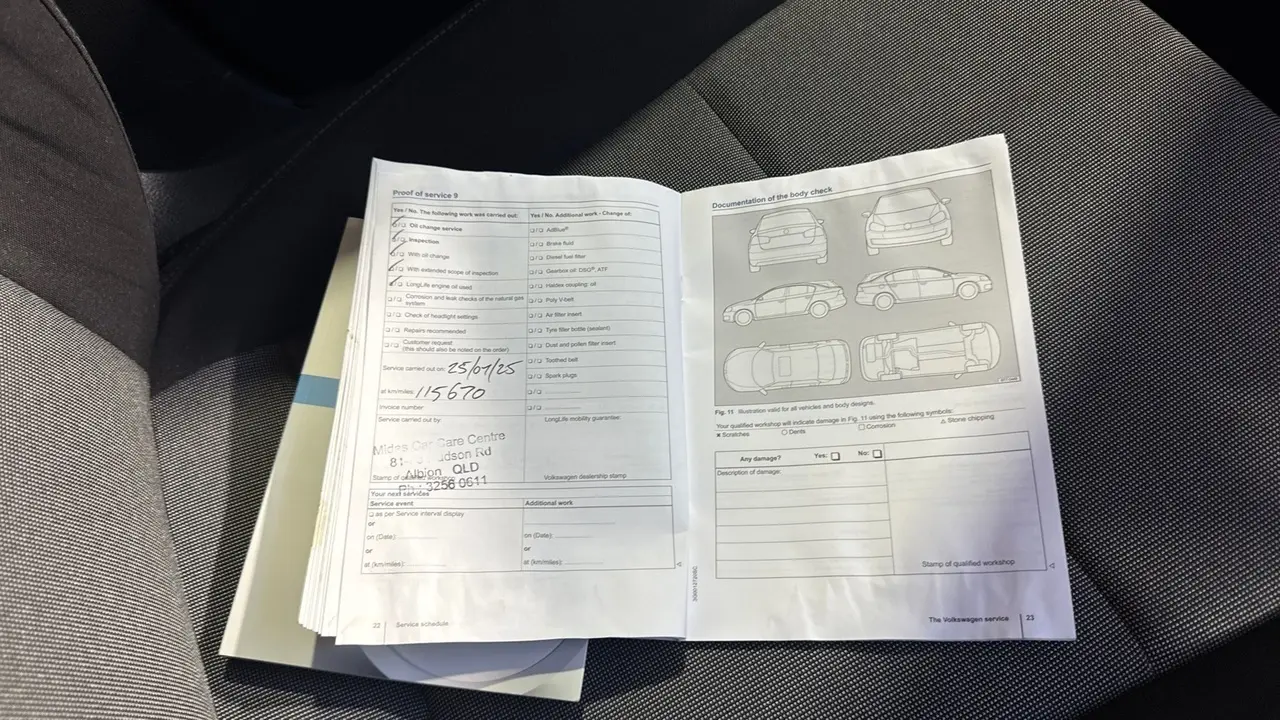 Proof of service 9
Yes / No. The following work was carried out:
Yes / No. Additional work - Change of:
Oil change service
AdBlue®
Inspection
Brake fluid
With oil change
Diesel fuel filter
With extended scope of inspection
Gearbox oil: DSG®, ATF
LongLife engine oil used
Haldex coupling: oil
Corrosion and leak checks of the natural gas
system
Poly V-belt
Check of headlight settings
Air filter insert
Repairs recommended
Tyre filler bottle (sealant)
Customer request
(this should also be noted on the order)
Dust and pollen filter insert
Toothed belt
Service carried out on: 25/07/25
Spark plugs
at km/miles: 115670
Invoice number
Service carried out by:
LongLife mobility guarantee:
Midas Car Care Centre
Albion QLD
3256 0611
Stamp of
Volkswagen dealership stamp
Your next services
Service event
Additional work
as per Service interval display
or
on (Date):
on (Date):
or
or
at (km/miles):
at (km/miles):
22 Service schedule
Documentation of the body check
Fig. 11 Illustration valid for all vehicles and body designs.
Your qualified workshop will indicate damage in Fig. 11 using the following symbols:
Scratches
Dents
Corrosion
Stone chipping
Any damage? Yes: No:
Description of damage:
Stamp of qualified workshop
The Volkswagen service 23